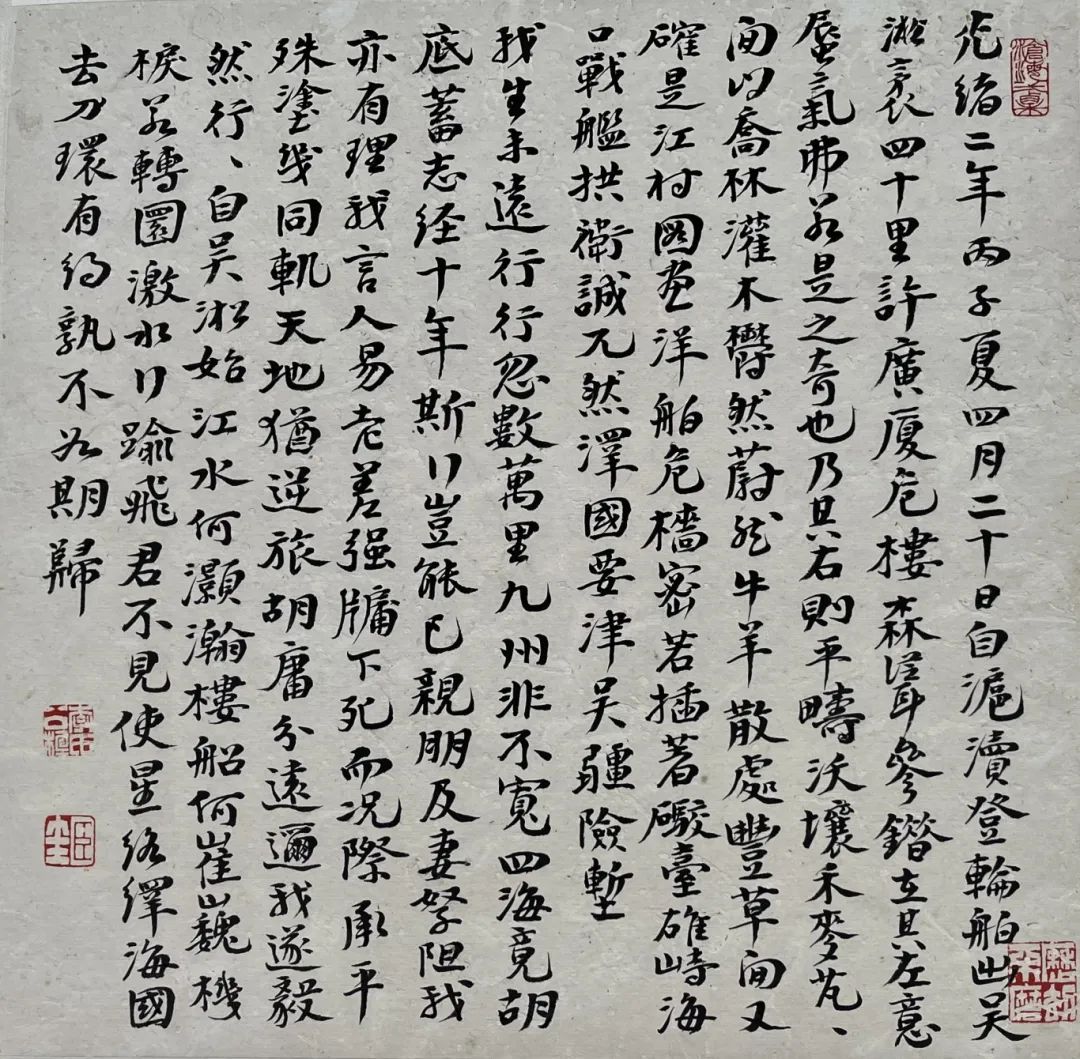 光緒二年丙子夏四月二十日自滬瀆登輪舶出吴
淞袤四十里許廣廈危樓森聳參錯在其左意
蜃氣弗若是之奇也乃其右則平疇沃壤禾麥芃、
间以喬林灌木欝然蔚然牛羊散處豐草间又
確是江村图画洋舶危檣密若插蓍礮臺雄峙海
口戰艦拱衛誠兀然澤國要津吴疆險塹
我生未遠行行忽數萬里九州非不寬四海竟胡
底蓄志经十年斯行豈能已親朋及妻孥阻我
亦有理我言人易老羞强牖下死而况際承平
殊塗幾同軌天地猶逆旅胡庸分遠邇我遂毅
然行、自吴淞始江水何灝瀚樓船何崔巍機
棙若轉圜激水行踰飛君不見使星络繹海國
去刀環有约孰不如期歸